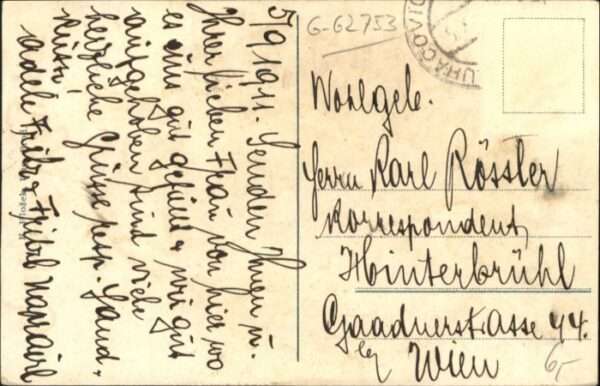 5/9 1911. Senden Ihnen u.
Ihrer lieben Frau von hier wo
es uns gut gefällt & wir gut
aufgehoben sind viele
herzliche Grüsse resp. Hand-
küsse
Adele
G-62753
UHAČOVIC
Wohlgeb.
Herrn Karl Rössler
Korrespondent
Hinterbrühl
Gaadnerstrasse 44.
bei Wien
6,-